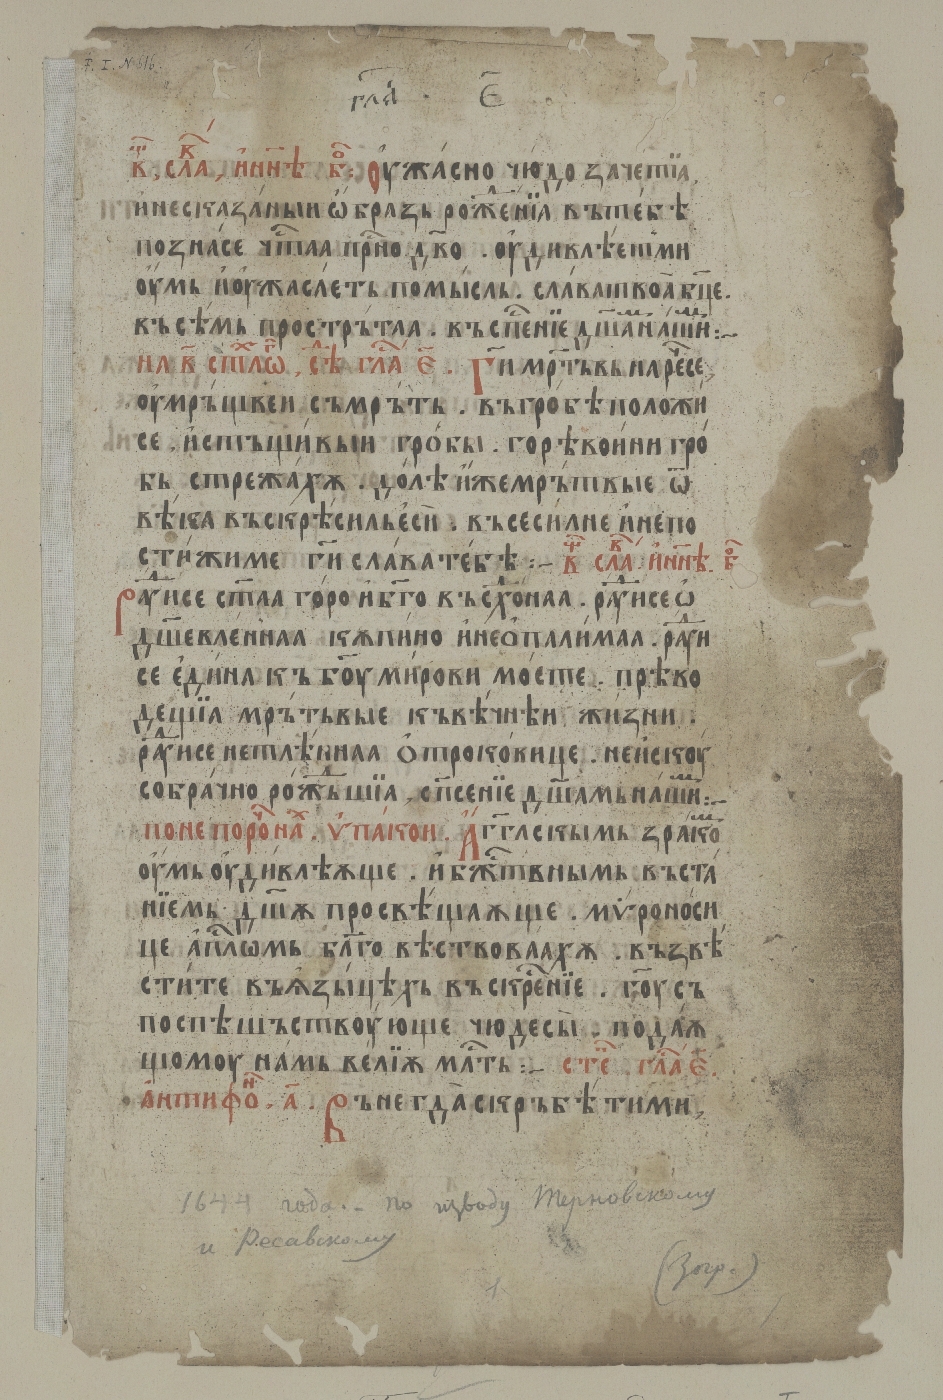 F. I. № 616.
гла҃ · е҃
к҃, сла, и҆ нн҃ѣ б҃: Оужасно чюдо зачетїа,
и҆ несказан̾ныи ѡ҆бразь роженїа въ тебѣ
позна се чт҃аа прн҃о дв҃о . оу҆дивлѣетми
оу҆мь и҆ оу҆жаслеть помысль . слава твоа бц҃е.
въ сѣмь прострътла . въ сп҃енїе дш҃а наши :~
на в҃ стл҃ѡ, сѣ гла҃ е҃ . Ги҃ мрътвь нарсе,
оу҆мръщвеи съмръть . въ гробѣ положи
се . и҆стъщивыи гробы . горѣ вои҆ни гро
бь стрежахѫ . долѣ и҆же мрътвые ѿ
вѣка въскрѣсиль е҆си . въсесилне и҆ непо
стижиме ги҃ слава тебѣ :~ к҃ сла и҆ нн҃ѣ . б҃
Рауисе ст҃аа горо и҆ бг҃о въсхонаа . рауисе ѡ
дш҃евленнаа кѫпино и҆ неѻпалимаа . рауи
се е҆дина къ бо҃у мирови мосте . прѣво
дещїа мрътьвые къ вѣчнѣи жизни .
рауисе нетлѣннаа ѻтроковице . неискоу
собрачно рождьшїа, сп҃сенїе дш҃амь наши :~
по непоро на . ѵ҆пакои . Аг҃глскымь зрако
оу҆мь оу҆дивлѣѫще . и҆ бж҃твнымь въста
нїемь дш҃ѫ просвѣщаѫще . мѵроноси
це ап҃лѡмь бл҃го вѣствоваахѫ . възвѣ
стите въ ѧзыцѣхь въскрсенїе . го҃у съ
поспѣшьствоующе чюдесы . подаѫ
щомоу намь велїѫ млт҃ь :~ сте гла е҃.
а҆нтифо. а҃ . Вънегда скръбѣти ми,
1644 года. – по изводу Терновскому
и Ресавскому
(Зогр.)
1